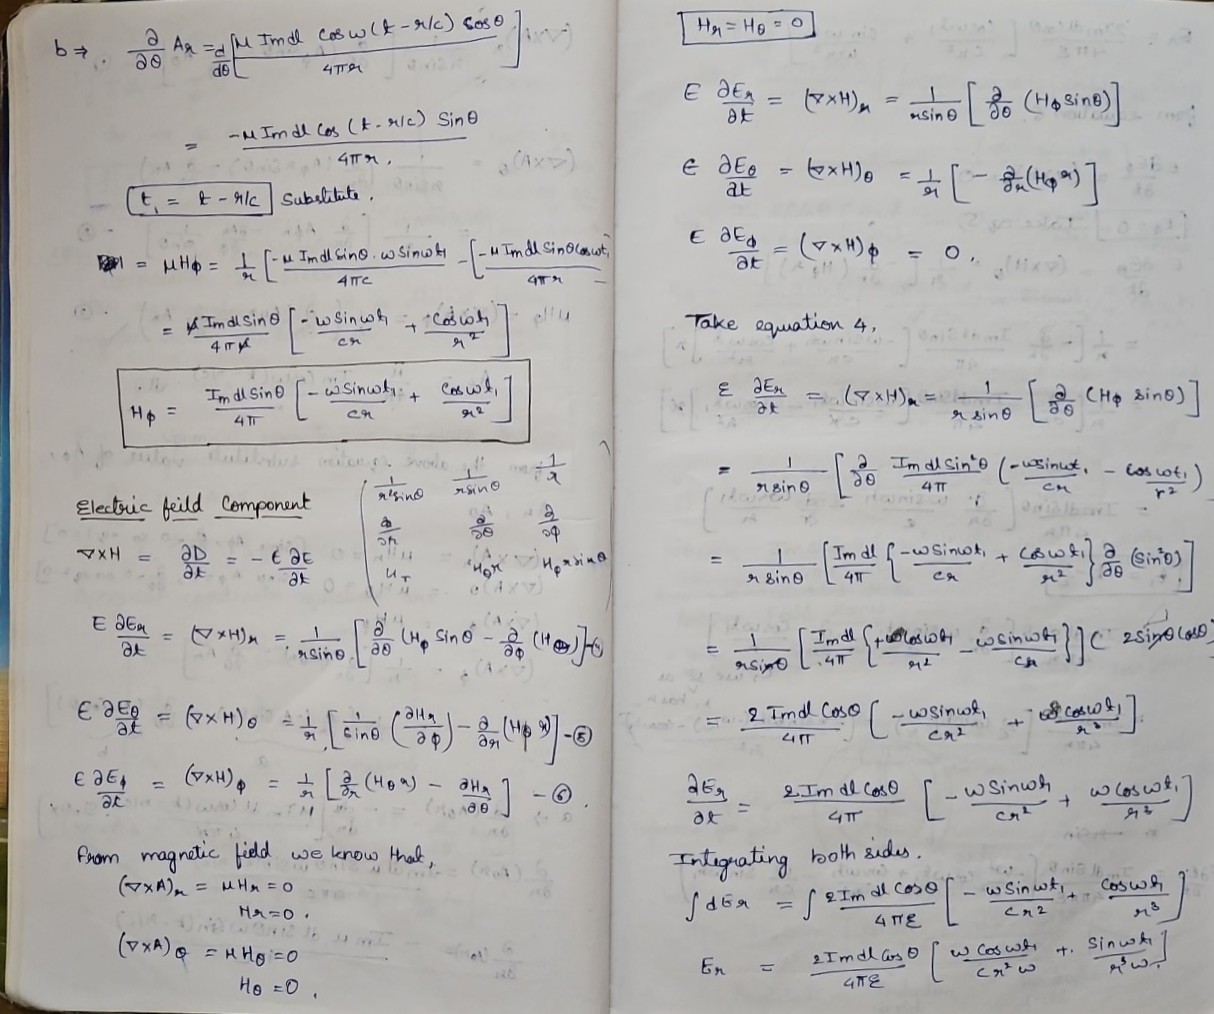 b ⇒ ∂/∂θ Ar = d/dθ [μ Imdl cos ω(t - r/c) cosθ / 4πr]
= -μ Imdl cos (t - r/c) Sinθ / 4πr.
t₁ = t - r/c Substitute.
= μHϕ = 1/r [-μ Imdl sinθ. ω sinωt₁ / 4πc - [-μ Imdl Sinθ cosωt₁ / 4πr
= μ Imdl sinθ / 4πμ [-ω Sinωt₁ / cr + cosωt₁ / r²]
Hϕ = Imdl Sinθ / 4π [-ω Sinωt₁ / cr + cosωt₁ / r²]
Electric feild Component
1/r²sinθ 1/rsinθ 1/r
∂/∂r ∂/∂θ ∂/∂ϕ
Hr Hθr Hϕ r sinθ
∇×H = ∂D/∂t = -ϵ ∂E/∂t
E ∂Er/∂t = (∇×H)r = 1/rsinθ [∂/∂θ (Hϕ Sinθ - ∂/∂ϕ (Hθr)] - ④
ϵ ∂Eθ/∂t = (∇×H)θ = 1/r [1/sinθ (∂Hr/∂ϕ) - ∂/∂r (Hϕ r)] - ⑤
ϵ ∂Eϕ/∂t = (∇×H)ϕ = 1/r [∂/∂r (Hθr) - ∂Hr/∂θ] - ⑥.
from magnetic field we know that,
(∇×A)r = μHr = 0
Hr = 0.
(∇×A)θ = μHθ = 0
Hθ = 0.
Hr = Hθ = 0
ϵ ∂Er/∂t = (∇×H)r = 1/rsinθ [∂/∂θ (Hϕ sinθ)]
ϵ ∂Eθ/∂t = (∇×H)θ = 1/r [- ∂/∂r (Hϕ r)]
ϵ ∂Eϕ/∂t = (∇×H)ϕ = 0.
Take equation 4,
ε ∂Er/∂t = (∇×H)r = 1/r sinθ [∂/∂θ (Hϕ sinθ)]
= 1/rsinθ [∂/∂θ Imdl Sin²θ / 4π (-ωsinωt₁ / cr - cosωt₁ / r²)
= 1/r sinθ [Imdl / 4π {-ω Sinωt₁ / cr + cosωt₁ / r²} ∂/∂θ (sin²θ)]
= 1/rsinθ [Imdl / 4π {+ωcosωt₁ / r² - ωsinωt₁ / cr}] (2sinθ cosθ)
= 2 Imdl Cosθ / 4π [-ωsinωt₁ / cr² + cosωt₁ / r³].
∂Er/∂t = 2 Imdl cosθ / 4π [-ω Sinωt₁ / cr² + ω cosωt₁ / r³]
Integrating both sides.
∫dEr = ∫ 2Imdl cosθ / 4πε [- ωSinωt₁ / cr² + cosωt₁ / r³]
Er = 2Imdl cosθ / 4πε [ω cosωt₁ / cr²ω + sinωt₁ / r³ω]